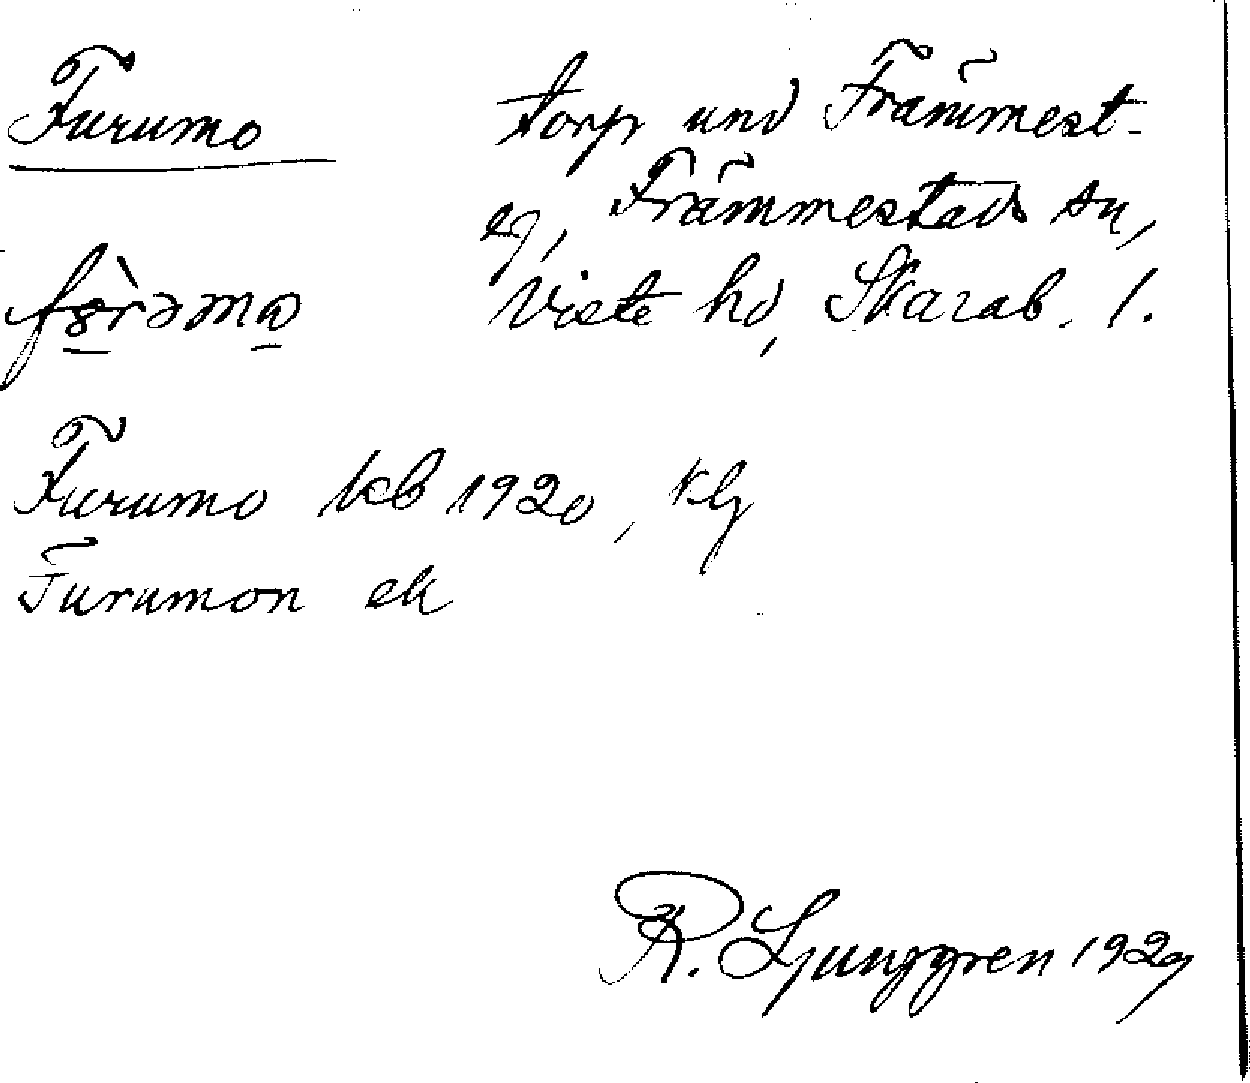 Furumo
torp und Främmest-
eg, Främmestads sn,
Viste hd, Skarab. l.
fɜ̀rəmo
Furumo kb 1920, klg
Furumon ek
R. Ljunggren 1929